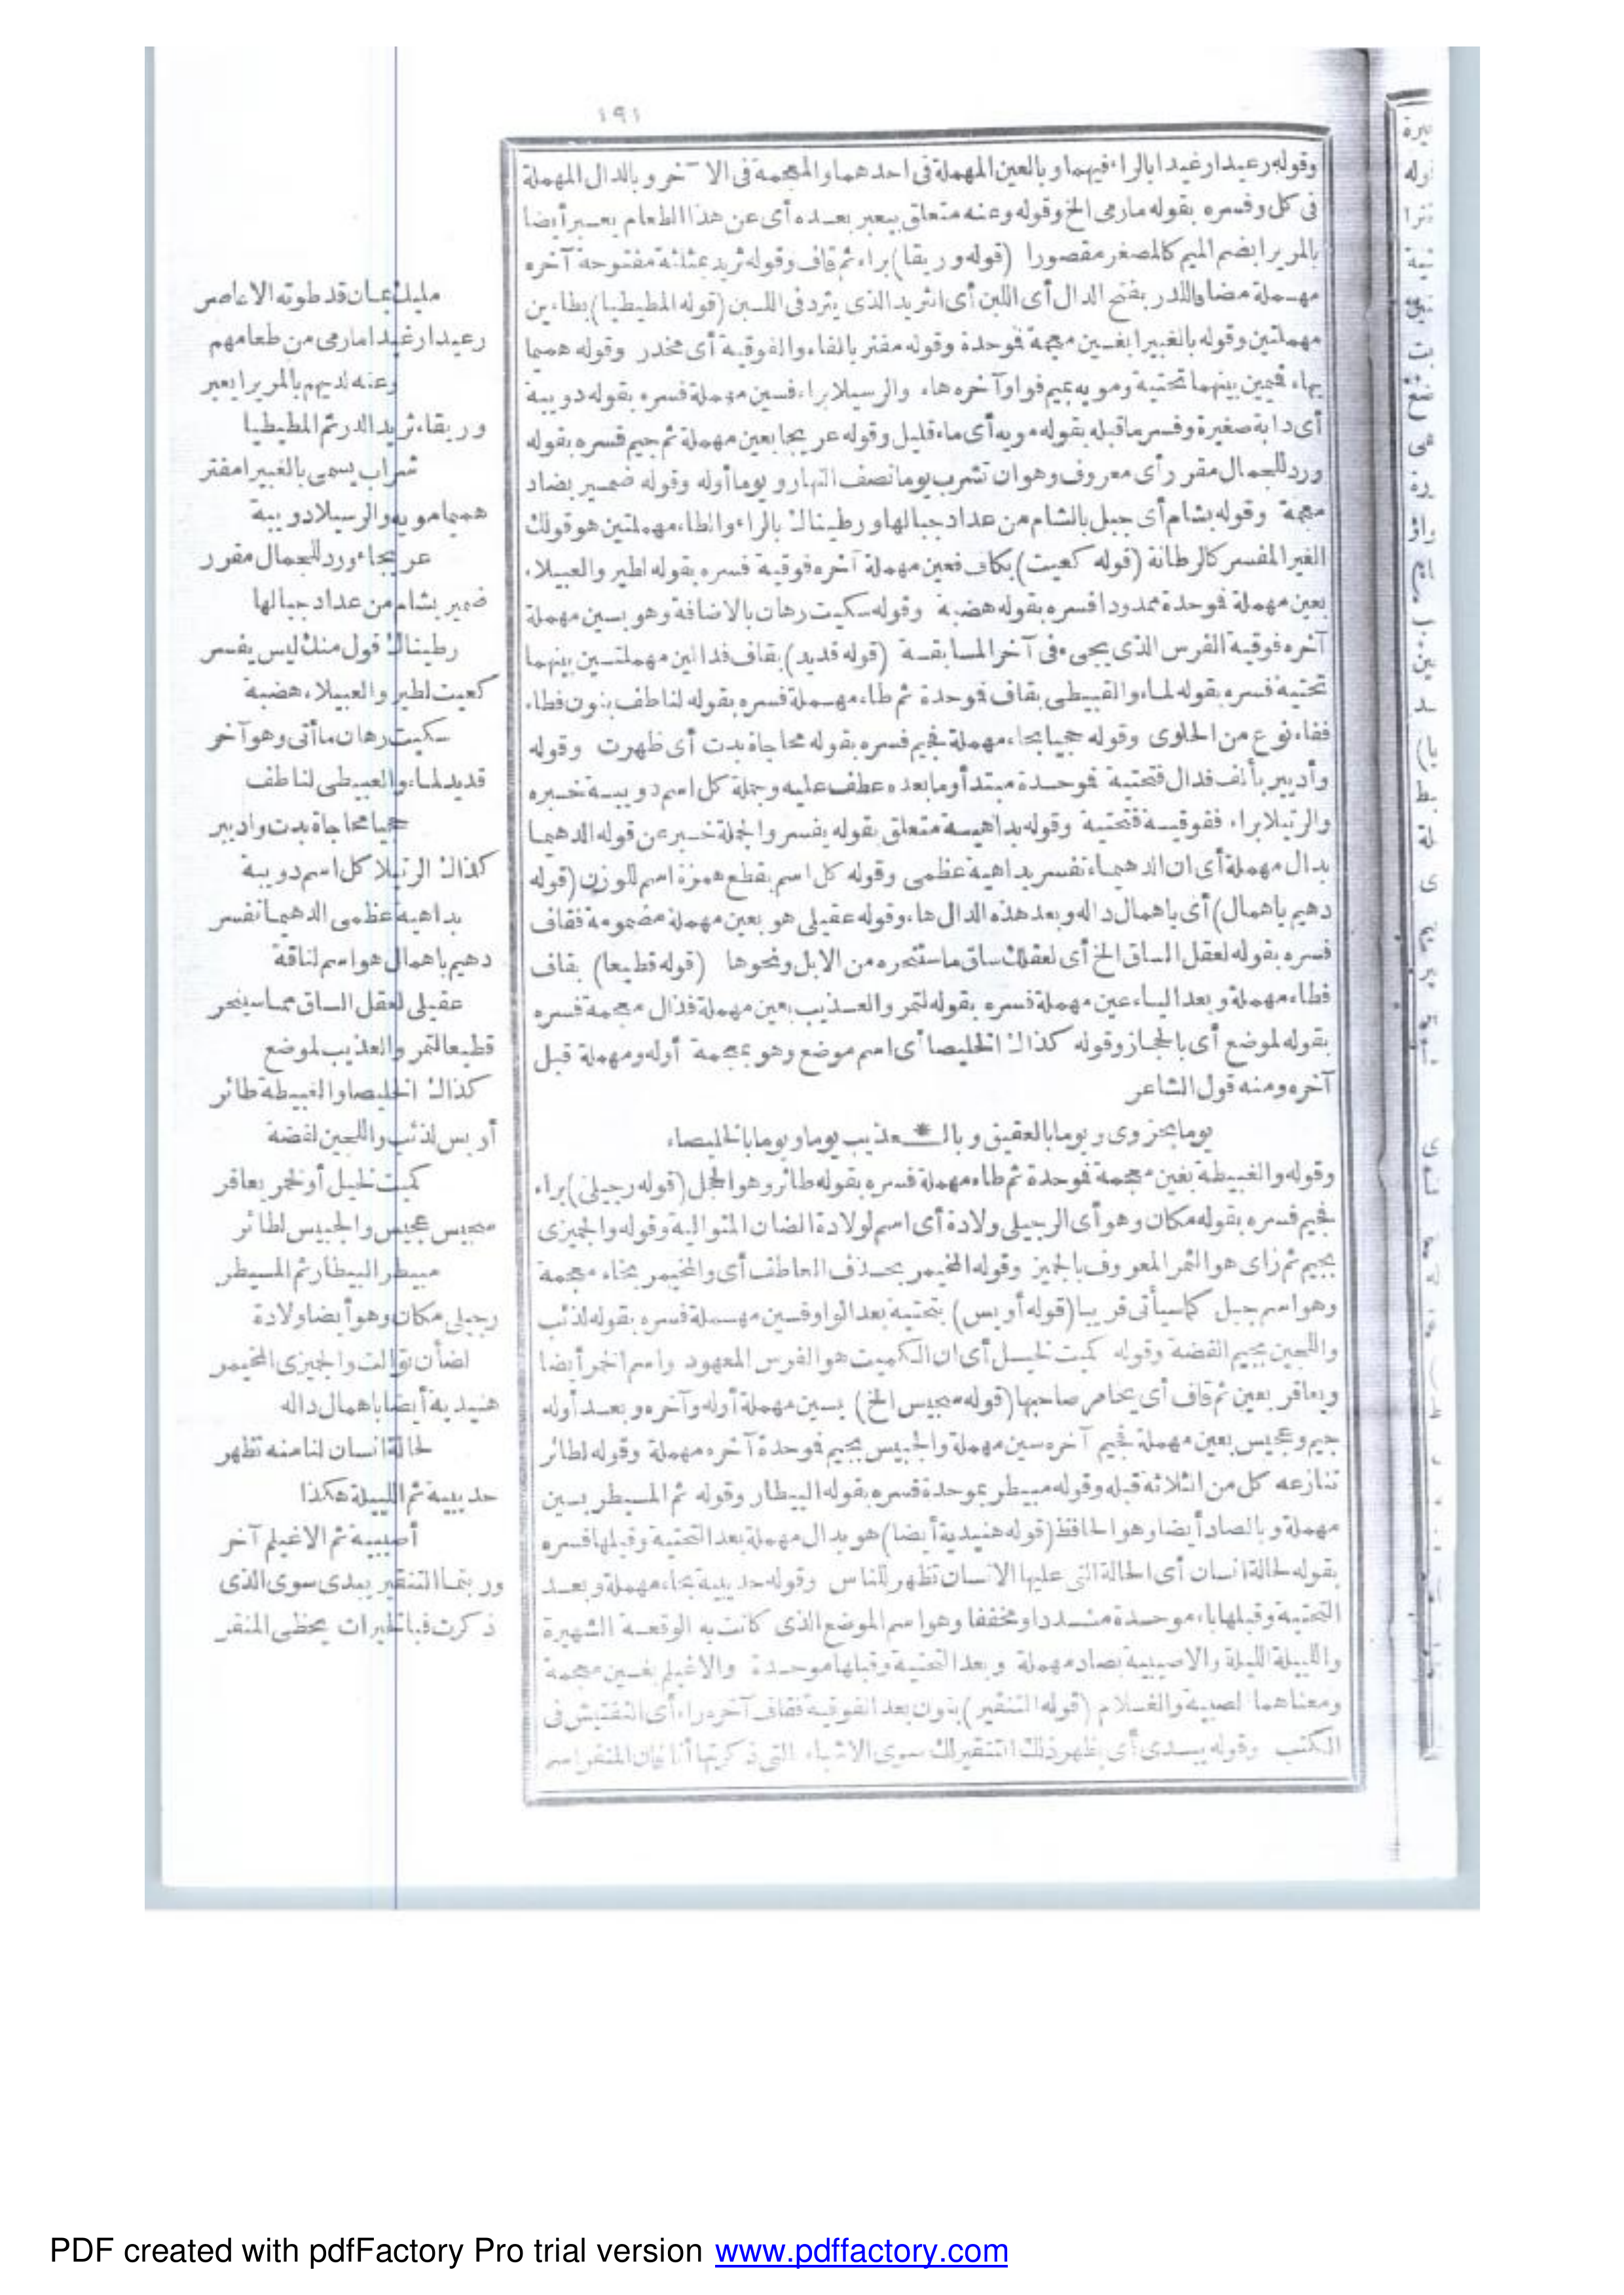 ١٩١
وقوله رعيدا رغيدا بالراء فيهما وبالعين المهملة فى احدهما والمعجمة فى الآخر وبالدال المهملة
فى كل وفسره بقوله مارمى الخ وقوله وعنه متعلق بيعبر بعده أى عن هذا الطعام يعبر أيضا
بالمريرا بضم الميم كالمصغر مقصورا (قوله وريقا) براء ثم قاف وقوله ثريد بمثلثة مفتوحة آخره
مهملة مضاف للدر بفتح الدال أى اللبن أى الثريد الذى يثرد فى اللبن (قوله المطيطيا) بطاءين
مهملتين وقوله بالغبيرا بغين معجمة فوحدة وقوله مفتر بالفاء والفوقية أى مخدر وقوله هميما
بهاء فميمين بينهما تحتية ومويه بميم فواو آخره هاء والرسيلا براء فسين مهملة فسره بقوله دويبة
أى دابة صغيرة وفسر ماقبله بقوله مويه أى ماء قليل وقوله عريجا بعين مهملة ثم جيم فسره بقوله
ورد للجمال مقرر أى معروف وهو ان تشرب يوما نصف النهار ويوما أوله وقوله ضمير بضاد
معجمة وقوله بشام أى جبل بالشام من عداد جبالها ورطيناك بالراء والطاء مهملتين هو قولك
الغير المفسر كالرطانة (قوله كعيت) بكاف فعين مهملة آخره فوقية فسره بقوله لطير والعبيلاء
بعين مهملة فوحدة ممدودا فسره بقوله هضبة وقوله سكيت رهان بالاضافة وهو بسين مهملة
آخره فوقية الفرس الذى يجىء فى آخر المسابقسة (قوله قديد) بقاف فدالين مهملتين بينهما
تحتية فسره بقوله لماء والقبيطى بقاف فوحدة ثم طاء مهملة فسره بقوله لناطف بنون فطاء
ففاء نوع من الحلوى وقوله حجيا بحاء مهملة فجيم فسره بقوله محاجاة بدت أى ظهرت وقوله
وأديبر بألف فدال فتحتية فوحدة مبتدأ ومابعده عطف عليه وجملة كل اسم دويبة خبره
والرتيلا براء ففوقية فتحتية وقوله بداهية متعلق بقوله يفسر والجملة خبر عن قوله الدهيما
بدال مهملة أى ان الدهيماء تفسر بداهية عظمى وقوله كل اسم بقطع همزة اسم للوزن (قوله
دهيم باهمال) أى باهمال داله وبعد هذه الدال هاء وقوله عقيلى هو بعين مهملة مضمومة فقاف
فسره بقوله لعقل الساق الخ أى لعقلك ساق ماستنحره من الابل ونحوها (قوله قطيعا) بقاف
فطاء مهملة وبعد الياء عين مهملة فسره بقوله لتمر والعذيب بعين مهملة فذال معجمة فسره
بقوله لموضع أى بالحجاز وقوله كذاك الخليصا أى اسم موضع وهو بمعجمة أوله ومهملة قبل
آخره ومنه قول الشاعر
يوما بحزوى ويوما بالعقيق وبالـ * ـعذيب يوما ويوما بالخليصاء
وقوله والغبيطة بغين معجمة فوحدة ثم طاء مهملة فسره بقوله طائر وهو الحجل (قوله رجيلى) براء
فجيم فسره بقوله مكان وهو أى الرجيلى ولادة أى اسم لولادة الضان المتوالية وقوله والجميزى
بجيم ثم زاى هو الثمر المعروف بالجميز وقوله المخيمر بحذف العاطف أى والمخيمر بخاء معجمة
وهو اسم جبل كما سيأتى قريبا (قوله أويس) بتحتية بعد الواو فسين مهملة فسره بقوله لذئب
واللجين بجيم الفضة وقوله كميت لخيل أى ان الكميت هو الفرس المعهود واسم الخمر أيضا
ويعاقر بعين ثم قاف أى يخامر صاحبها (قوله سجيس الخ) بسين مهملة أوله وآخره وبعد أوله
جيم وعجيس بعين مهملة فجيم آخره سين مهملة والجبيس بجيم فوحدة آخره مهملة وقوله لطائر
تنازعه كل من الثلاثة قبله وقوله مبيطر بموحدة فسره بقوله البيطار وقوله ثم المسيطر بسين
مهملة وبالصاد أيضا وهو الحافظ (قوله هنيدية أيضا) هو بدال مهملة بعد التحتية وقبلها فسره
بقوله لحالة انسان أى الحالة التى عليها الانسان تظهر للناس وقوله حديبية بحاء مهملة وبعد
التحتية وقبلها باء موحدة مشددا ومخففا وهو اسم الموضع الذى كانت به الوقعة الشهيرة
واللييلة الليلة والاصيبية بصاد مهملة وبعد التحتية وقبلها موحدة والاغيلم بغين معجمة
ومعناهما لصبية والغلام (قوله التنقير) بنون بعد الفوقية فقاف آخره راء أى التفتيش فى
الكتب وقوله يبدى أى يظهر ذلك التنقير لك سوى الاشياء التى ذكرتها أنا فان المنقر اسم
مليك عمان قد طوته الاعاصر
رعيدا رغيدا مارمى من طعامهم
وعنه لديهم بالمريرا يعبر
وريقاء ثريد الدر ثم المطيطيا
شراب يسمى بالغبيرا مفتر
هميما مويه والرسيلا دويبة
عريجاء ورد للجمال مقرر
ضمير بشام من عداد جبالها
رطيناك قول منك ليس يفسر
كعيت لطير والعبيلاء هضبة
سكيت رهان ما أتى وهو آخر
قديد لماء والقبيطى لناطف
حجيا محاجاة بدت وادبير
كذاك الرتيلا كل اسم دويبة
بداهية عظمى الدهيما تفسر
دهيم باهمال هو اسم لناقة
عقيلى لعقل الساق مما سينحر
قطيعا لتمر والعذيب لموضع
كذاك الخليصا والغبيطة طائر
أويس لذئب واللجين لفضة
كميت لخيل أو لخمر يعاقر
سجيس عجيس والجبيس لطائر
مبيطر البيطار ثم المسيطر
رجيلى مكان وهو أيضا ولادة
لضأن توالت والجميزى المخيمر
هنيدية أيضا باهمال داله
لحالة انسان لنا منه تظهر
حديبية ثم اللييلة هكذا
أصيبية ثم الاغيلم آخر
وربتما التنقير يبدى سوى الذى
ذكرت فبالخيرات يحظى المنقر
PDF created with pdfFactory Pro trial version www.pdffactory.com